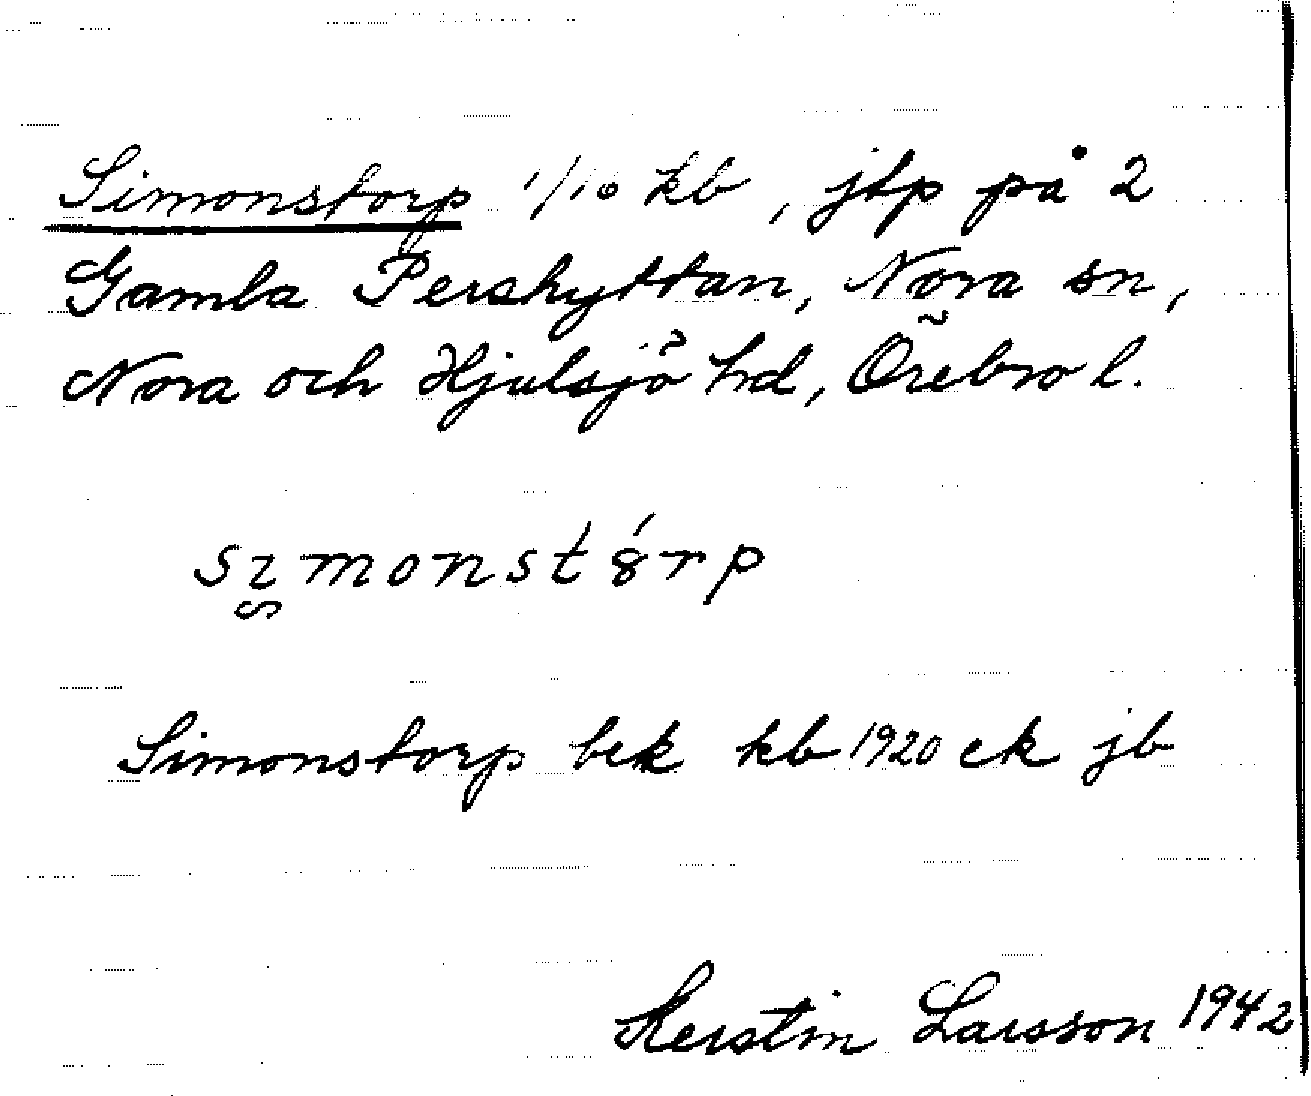 Simonstorp 1/16 kb, jtp på 2
Gamla Pershyttan, Nora sn,
Nora och Hjulsjö hd, Örebro l.
Simonstorp bek kb 1920 ek jb
Kerstin Larsson 1942